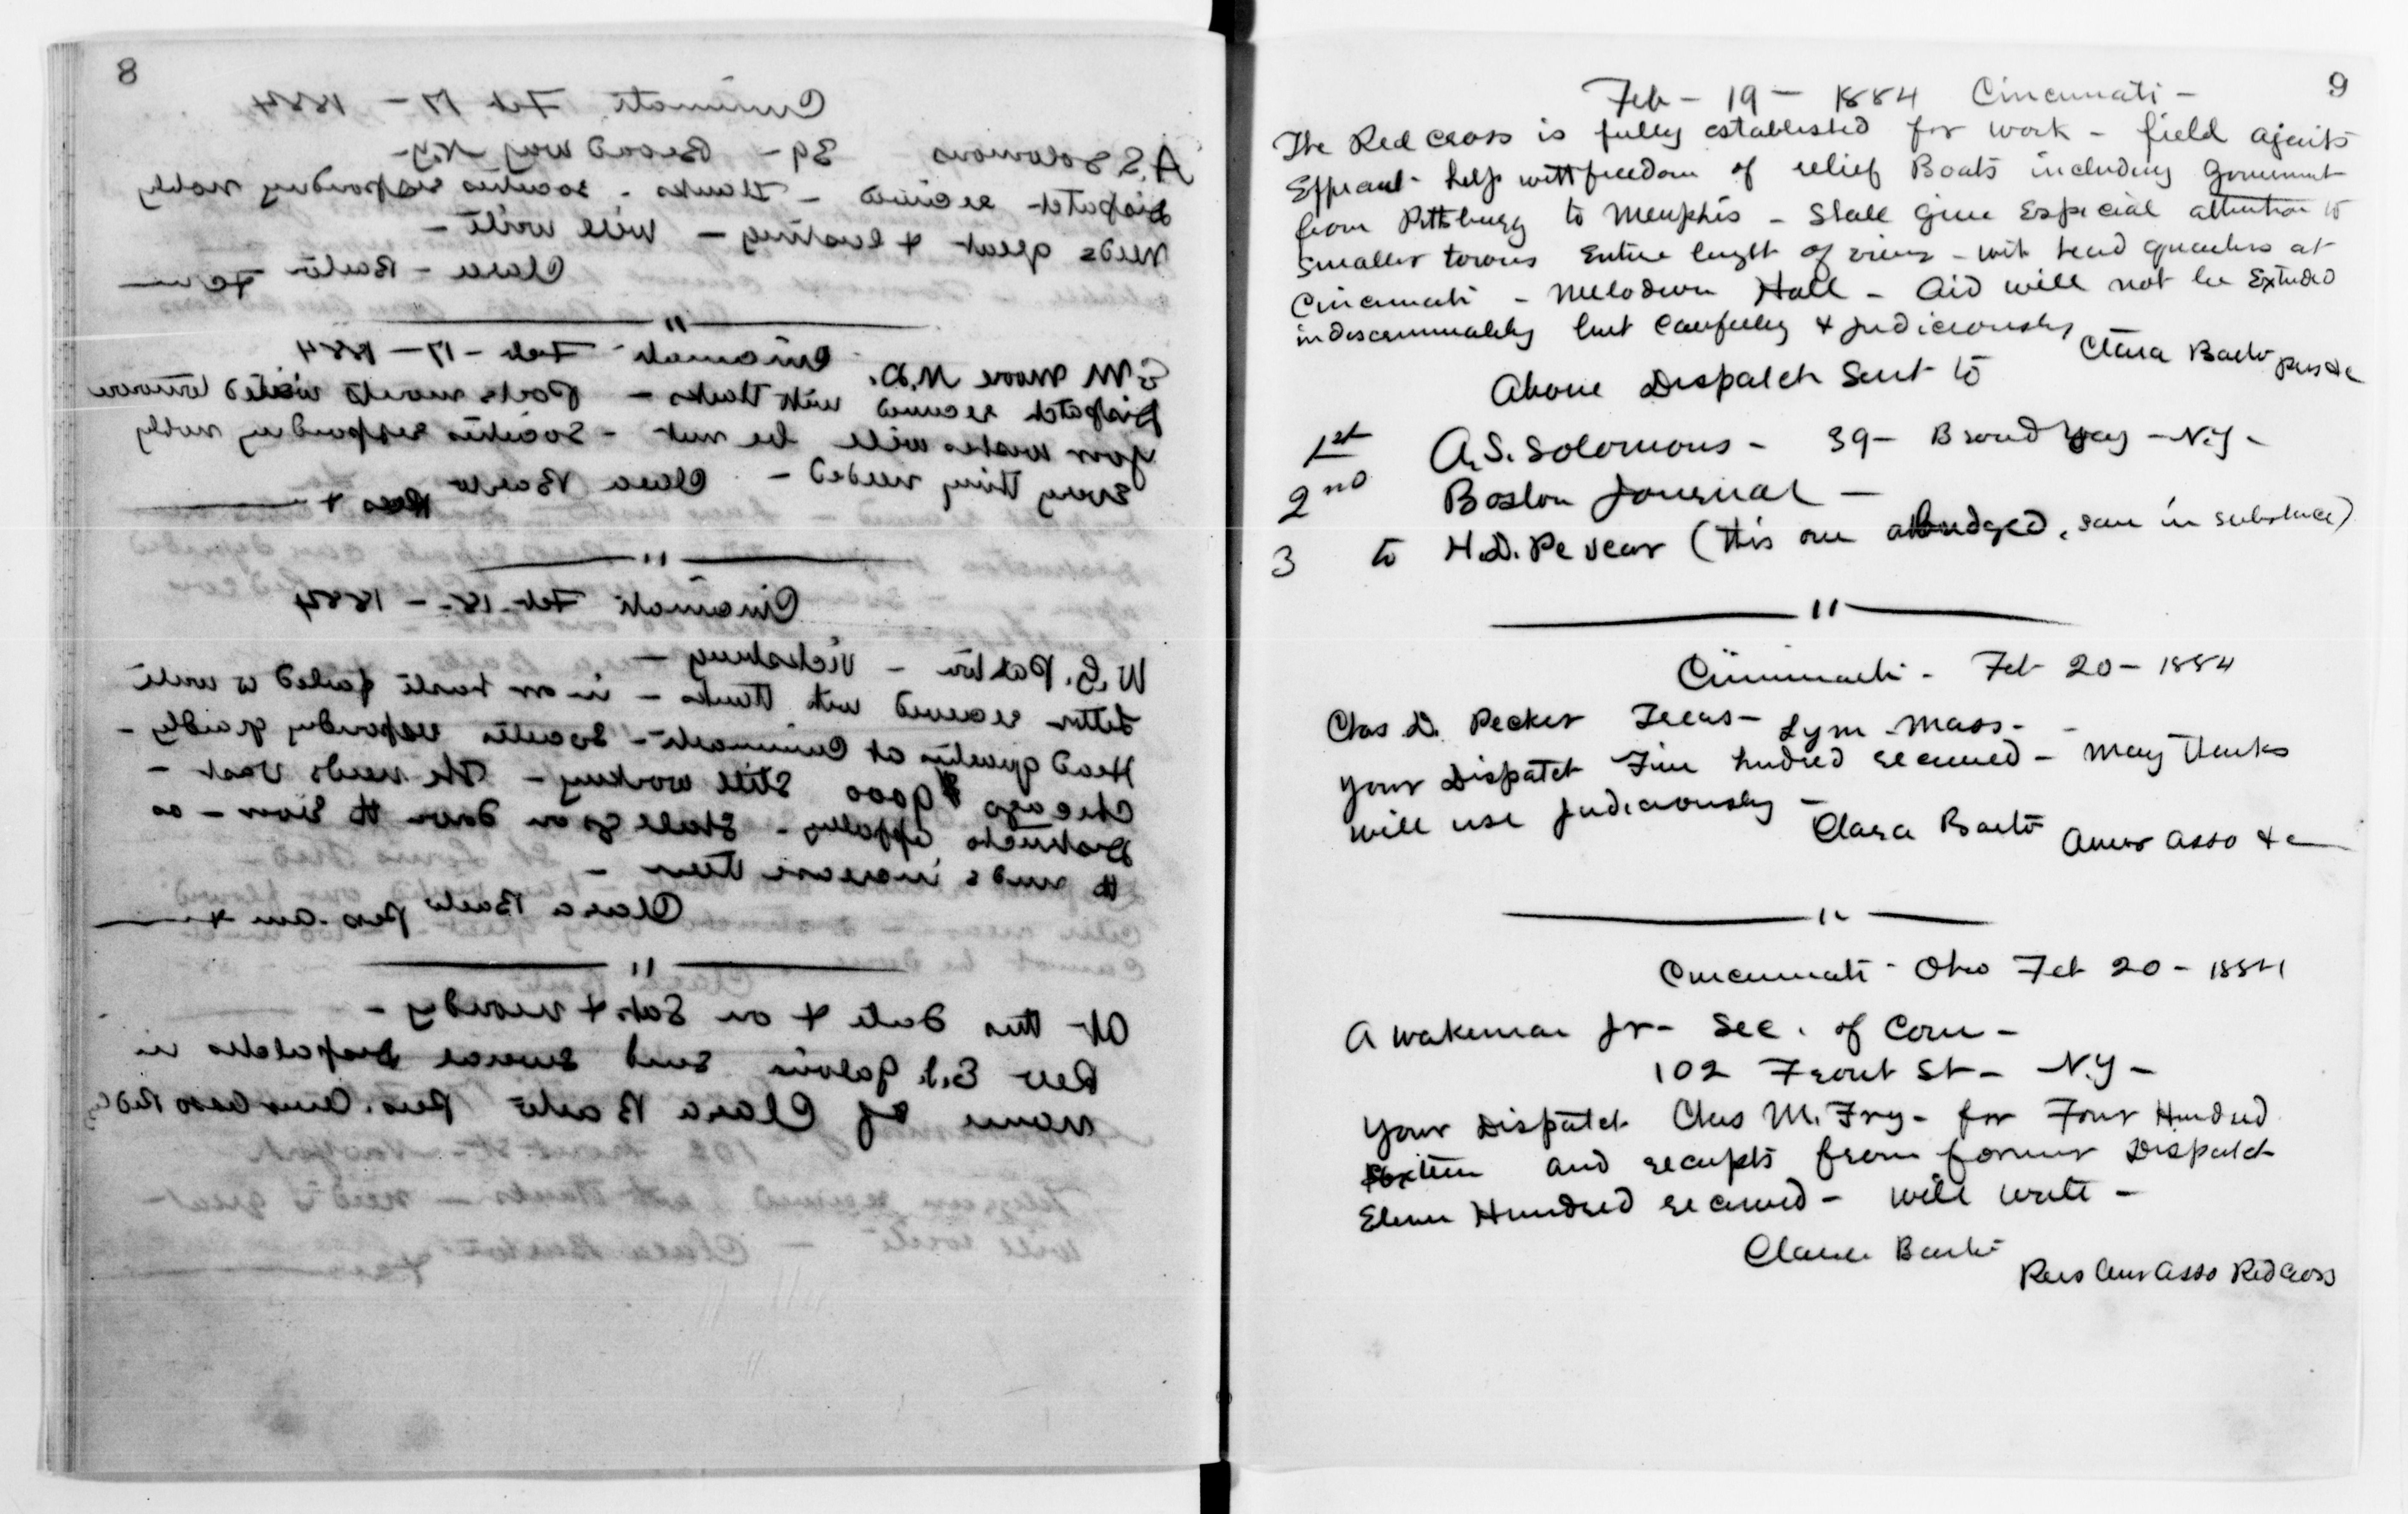 8
Cincinnati Feb 17 - 1884
A.S. Solomons 39 - Broadway N.Y-
Dispatch received - thanks - societies responding nobly
Needs great & lasting - will write -
Clara - Barton
"
Cincinnati Feb - 17 - 1884
E M Moore M.D.
Dispatch received with thanks - visited tomorrow
your wishes will be met - Societies responding nobly
Every thing needed - Clara Barton
Pres &
"
Cincinnati Feb - 18 - 1884
W.G. Paxton - Vicksburg -
Letter received with thanks - in our haste failed to write
Head quarters at Cincinnati - Societies responding grandly -
Chicago $9000 still working - The needs vast -
Destruction appalling - Shall go on down the river - as
the funds increase
Clara Barton Pres. Am &
"
At this date & on Sat. & monday -
Rev E.J. Galvin sent several Dispatches in
name of Clara Barton Pres. Amer Asso Red
9
Feb - 19 - 1884 Cincinnati -
The Red cross is fully established for work - field agents
Efficient help with freedom of relief Boats including Government
from Pittsburg to Memphis - Shall give Especial attention to
smaller towns Entire lenght of river - with head quarters at
Cincinnati - Melodeon Hall - Aid will not be Extended
indiscriminately but Carefully & judiciously
Clara Barton Pres &c
Above Dispatch Sent to
1st A.S. Solomons - 39 - Broadway - N.Y -
2nd Boston Journal -
3 to H.D. Pevear (this one abridged, same in substance)
"
Cincinnati - Feb 20 - 1884
Chas D. Pecker Treas - Lynn - Mass -
your Dispatch Five hundred received - Many thanks
will use judiciously -
Clara Barton Amer Asso &c
"
Cincinnati - Ohio Feb 20 - 1884
A Wakeman Jr - Sec. of Com -
102 Front St - N.Y -
Your Dispatch Chas M. Fry - for Four Hundred
Sixteen and receipts from former Dispatch
Eleven Hundred received - will write -
Clara Barton
Pres Amer Asso Red Cross